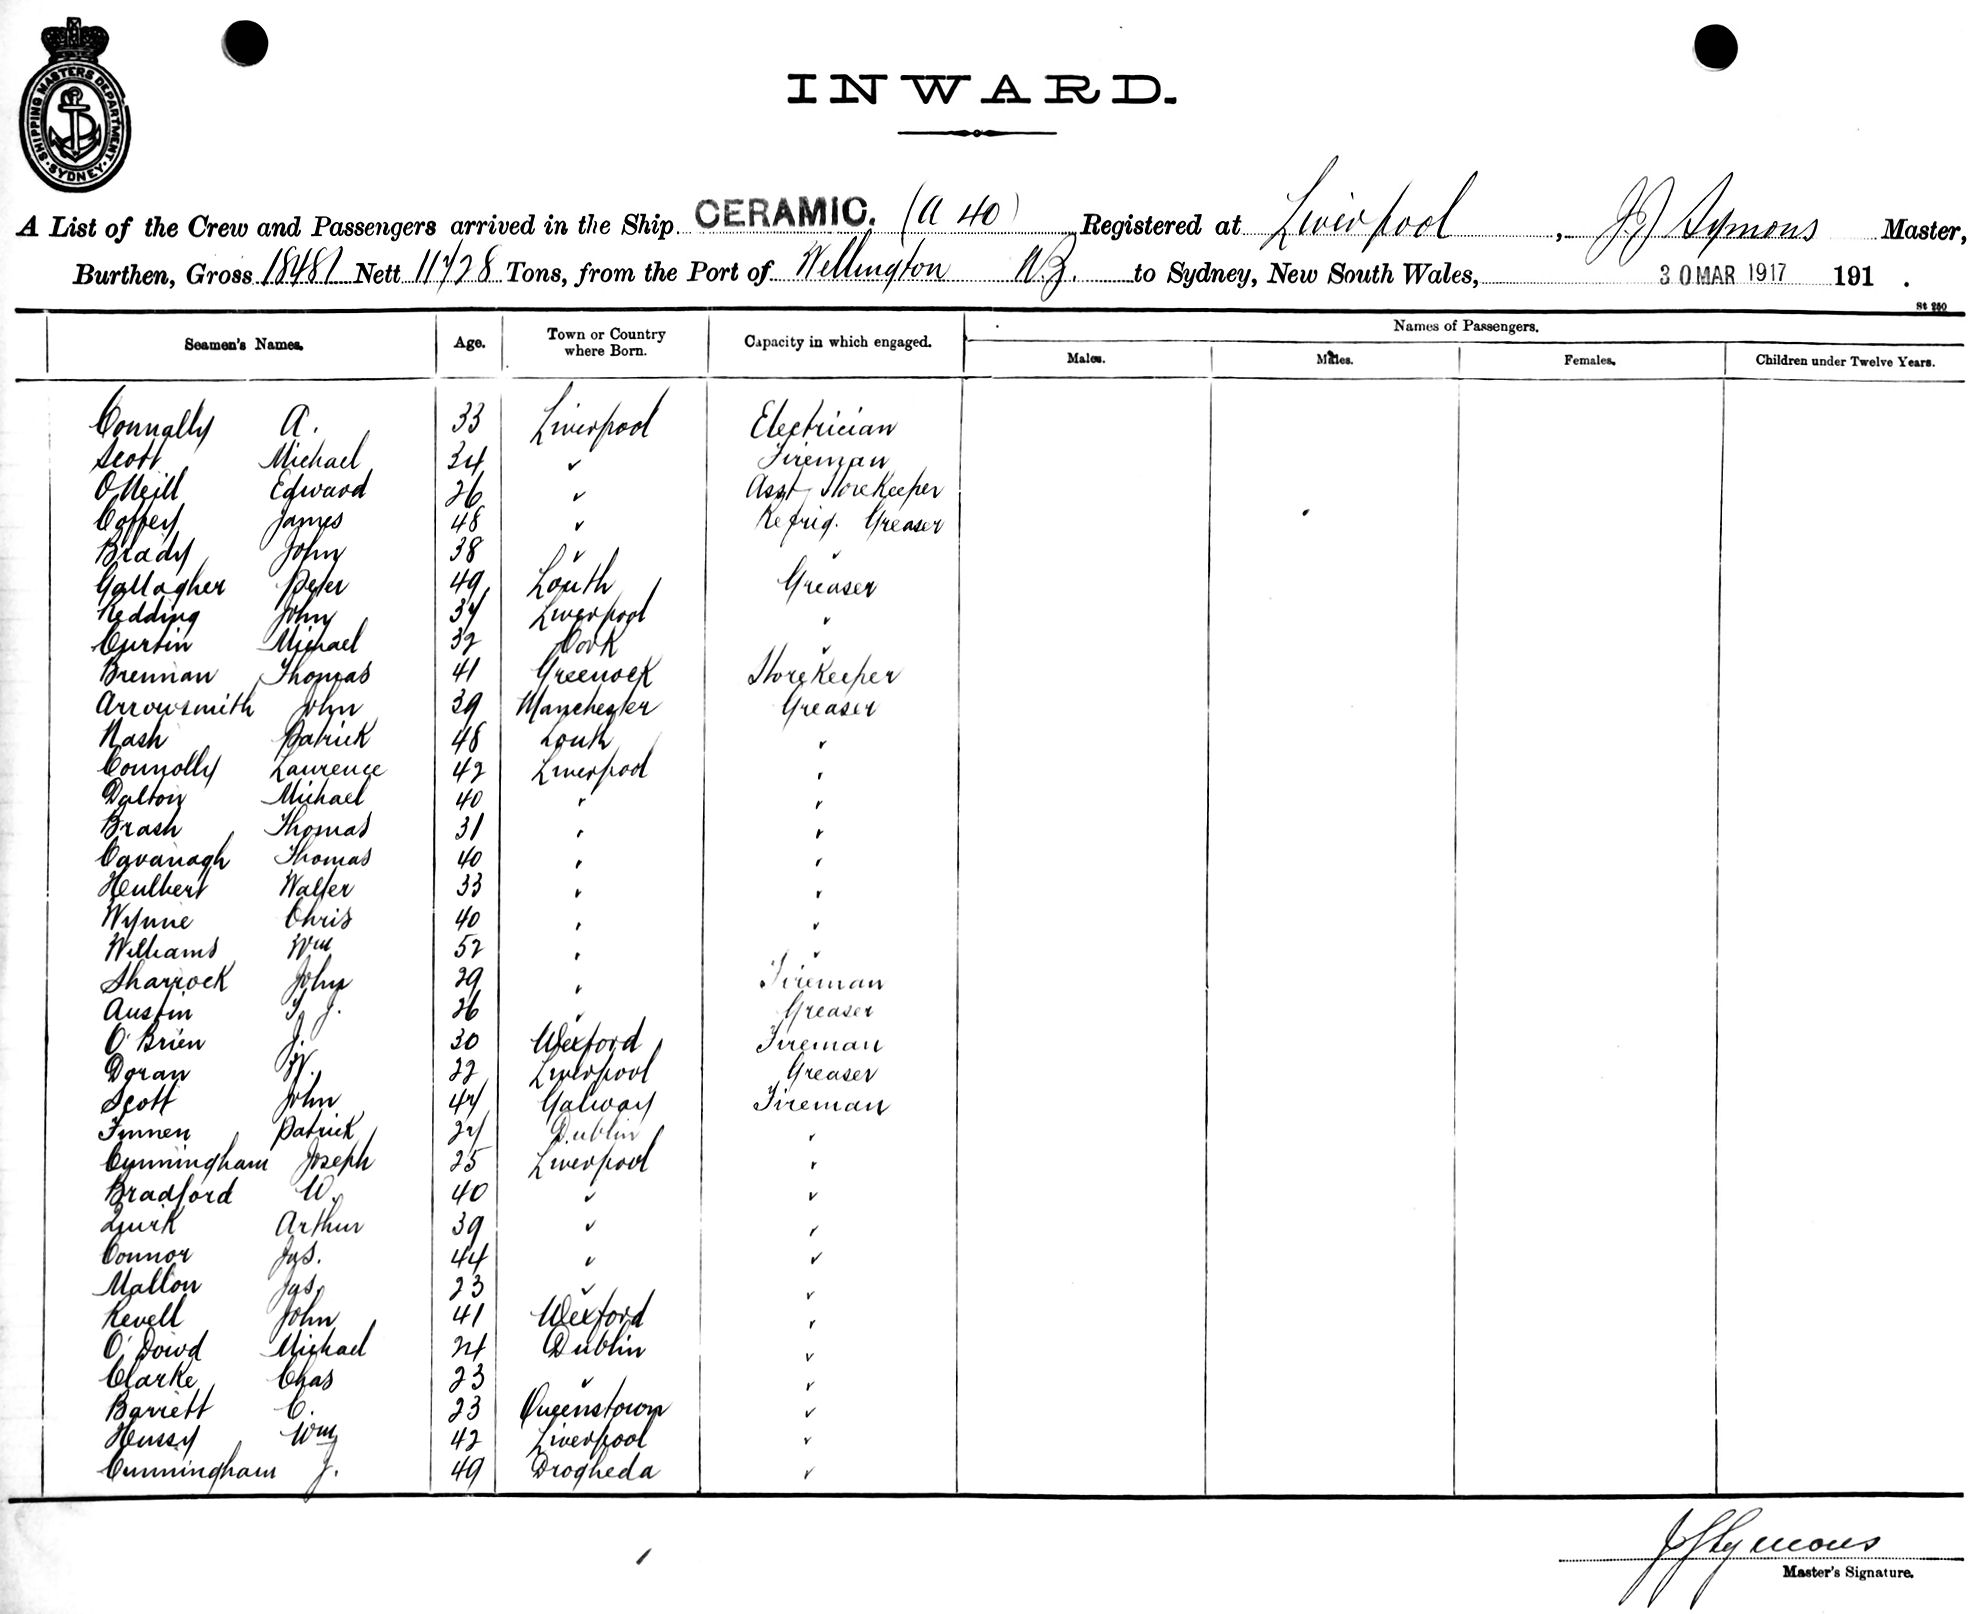 SHIPPING MASTERS DEPARTMENT · SYDNEY ·
INWARD.
A List of the Crew and Passengers arrived in the Ship CERAMIC. (A 40) Registered at Liverpool, J J Symons Master,
Burthen, Gross 18481 Nett 11728 Tons, from the Port of Wellington N.Z. to Sydney, New South Wales, 30 MAR 1917 191 .
St 250
Seamen's Names. Age. Town or Country where Born. Capacity in which engaged. Names of Passengers.
Males. Males. Females. Children under Twelve Years.
Connolly A. 33 Liverpool Electrician
Scott Michael 34 " Fireman
O'Neill Edward 26 " Asst Storekeeper
Coffey James 48 " Refrig. Greaser
Brady John 38 " "
Gallagher Peter 49 Louth Greaser
Redding John 37 Liverpool "
Curtin Michael 32 Cork "
Brennan Thomas 41 Greenock Storekeeper
Arrowsmith John 39 Manchester Greaser
Nash Patrick 48 Louth "
Connolly Laurence 42 Liverpool "
Dalton Michael 40 " "
Brash Thomas 31 " "
Cavanagh Thomas 40 " "
Heulbert Walter 33 " "
Wynne Chris 40 " "
Williams Wm 52 " "
Sharrock John 29 " Fireman
Austin T. J. 26 " Greaser
O'Brien J. 30 Wexford Fireman
Doran W. 22 Liverpool Greaser
Scott John 47 Galway Fireman
Finnen Patrick 27 Dublin "
Cunningham Joseph 25 Liverpool "
Bradford W. 40 " "
Quirk Arthur 39 " "
Connor Jas. 44 " "
Mallon Jas. 23 " "
Revell John 41 Wexford "
O'Dowd Michael 24 Dublin "
Clarke Chas 23 " "
Barrett C. 23 Queenstown "
Hussy Wm 42 Liverpool "
Cunningham J. 49 Drogheda "
J J Symons
Master's Signature.